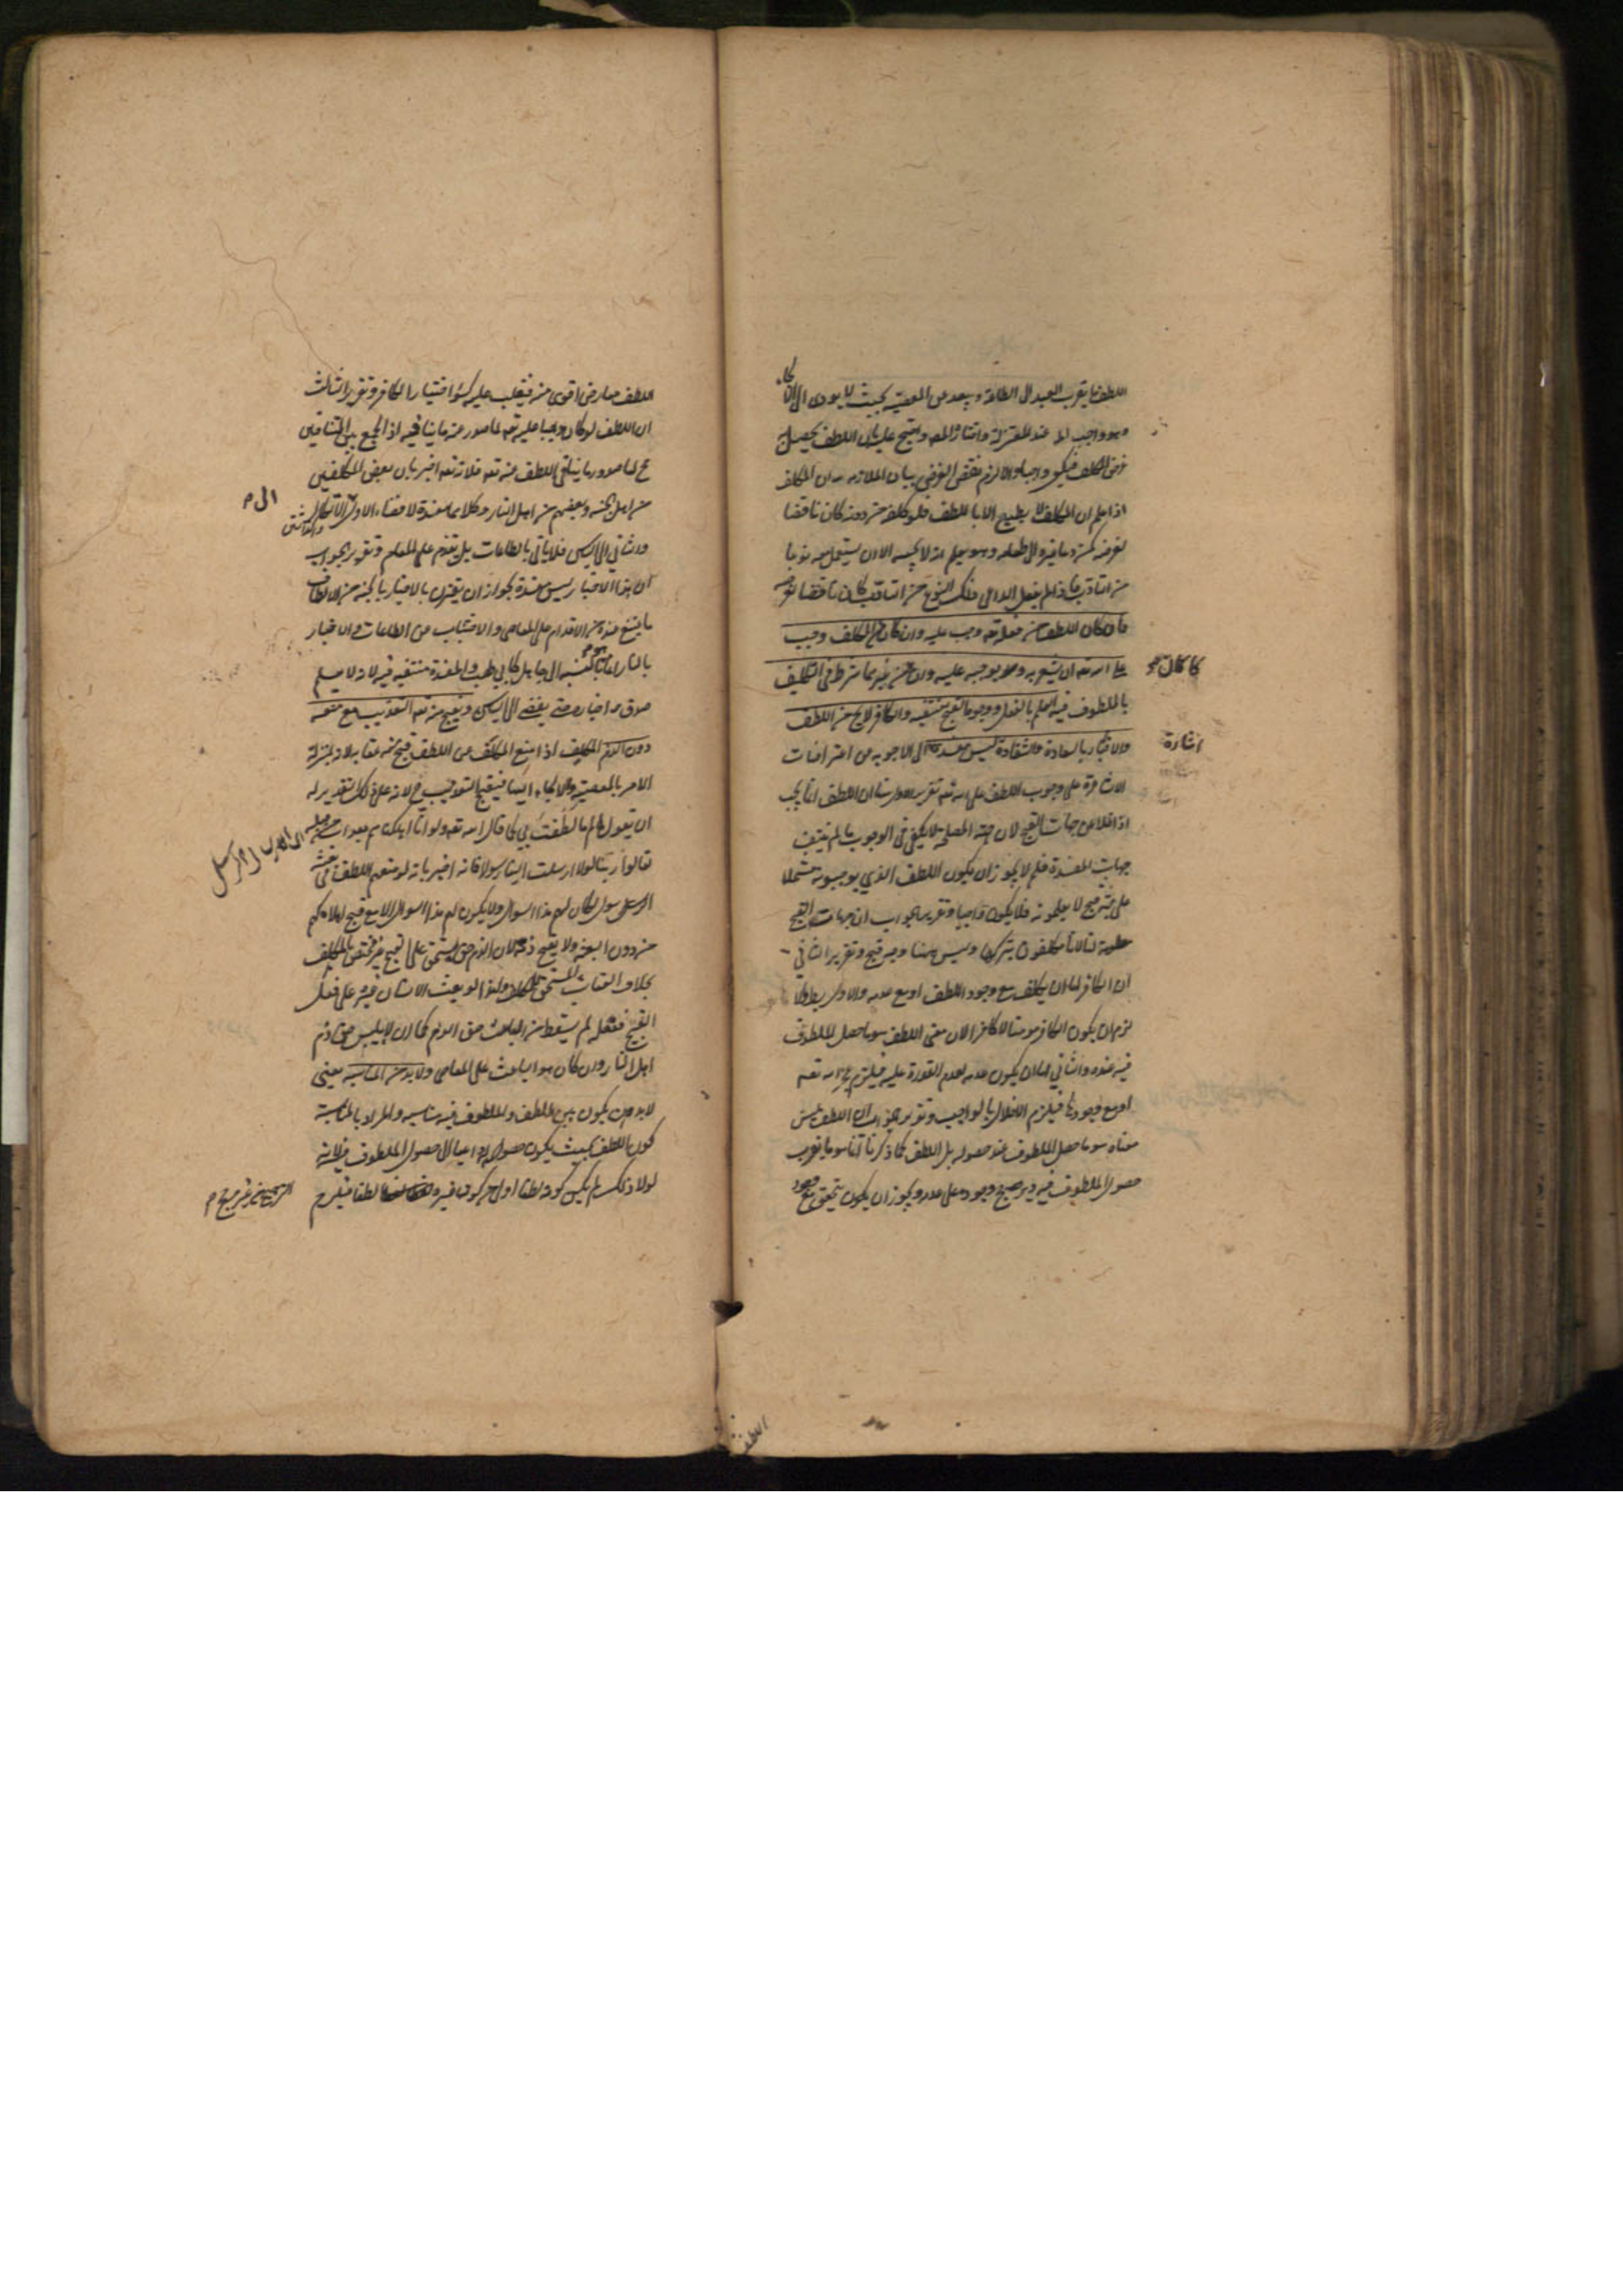 اللطف ما يقرب العبد الى الطاعة ويبعده عن المعصية بحيث لا يودى الى الالجاء
وهو واجب عند المعتزلة واختاره المص واحتج عليه بان اللطف يحصل
غرض المكلف فيكون واجبا والا لزم نقض الغرض بيان الملازمة ان المكلف
اذا علم ان المكلف لا يطيع الا باللطف فلو كلفه من دونه كان ناقضا
لغرضه كمن دعا غيره الى طعامه وهو يعلم انه لا يجيبه الا ان يستعمل معه نوعا
من التادب فاذا لم يفعل الداعى ذلك النوع من التادب كان ناقضا لغرضه
فان كان اللطف من فعله تعه وجب عليه وان كان من المكلف وجب
على الله تعه ان يشعره به ويوجبه عليه وان كان من غيرهما شرط فى التكليف
بالملطوف فيه العلم بالفعل ووجوه القبح منتفيه والكافر لا يخ من اللطف
والاخبار بالسعادة والشقاوة ليس مفسدة الى الاجوبة عن اعتراضات
اشارة
الاشاعرة على وجوب اللطف على الله تعه تقرير الاول ان اللطف انما يجب
اذا خلا عن جهات القبح لان جهة المصلحة لا تكفى فى الوجوب ما لم ينتف
جهات المفسدة فلم لا يجوز ان يكون اللطف الذي يوجبونه مشتملا
على جهة قبح لا يعلمونه فلا يكون واجبا وتقرير الجواب ان جهات القبح
معلومة لنا لانا مكلفون بتركها وليس ههنا وجه قبح وتقرير الثانى
ان الكافر اما ان يكلف مع وجود اللطف او مع عدمه والاول باطل والا
لزم ان يكون الكافر مومنا لا كافرا لان معنى اللطف هو ما حصل الملطوف
فيه عنده والثاني اما ان يكون عدمه لعدم القدرة عليه فيلزم عجز الله تعه
او مع وجودها فيلزم الاخلال بالواجب وتقرير الجواب ان اللطف ليس
معناه هو ما حصل الملطوف عند حصوله بل اللطف كما ذكرنا آنفا هو ما يقرب
حصول الملطوف فيه ويرجح وجوده على عدمه ويجوز ان يكون يتحقق مع وجود
اللطف
اللطف معارض اقوى منه فيغلب عليه كسوء اختيار الكافر وتقرير الثالث
ان اللطف لو كان واجبا عليه تعه لما صدر عنه ما ينافيه اذ الجمع بين المتنافيين
مح لما صدر ما ينافي اللطف عنه تعه فلانه تعه اخبر بان بعض المكلفين
من اهل الجنه وبعضهم من اهل النار وكلاهما مفسدة لافضاء الاول الى الاتكال
الى م
والثانى الى الياس فلا ياتى بالطاعات بل يقدم على المعاصى وتقرير الجواب
ان هذا الاخبار ليس مفسدة لجواز ان يقترن بالاخبار بالجنه من الالطاف
ما يمتنع عنده من الاقدام على المعاصى والاجتناب عن الطاعات والاخبار
بالنار اما بالنسبه الى جاهل كابى لهب والمفسدة منتفيه فيه لانه لا يعلم
صدق اخباره حتى يفضى الى الياس ويقبح منه تعه التعذيب مع منعه
دون الذم المكلف اذا منع المكلف عن اللطف قبح منه عقابه لانه بمنزلة
الامر بالمعصيه والالجاء اليها فيقبح التعذيب ح لانه على ذلك تقدير له
ان يقول لم ما لطفت بي كما قال الله تعه ولو انا اهلكناهم بعذاب من قبله
لقالوا ربنا لولا ارسلت الينا رسولا فانه اخبر بانه لو منعهم اللطف فى بعثه
الرسول لكان لهم هذا السوال ولا يكون لهم هذا السوال الا مع قبح اهلاكهم
من دون البعثه ولا يقبح ذمه لان الذم حق مستحق على القبيح غير مختص بالمكلف
بخلاف العقاب المستحق للمكلف ولذا لو بعث الانسان غيره على فعل
القبيح ففعله لم يسقط من الباعث حق الذم كما ان لابليس حق ذم
اهل النار وان كان هو الباعث على المعاصى ولا بد من المناسبة يعنى
لا بد من ان يكون بين اللطف والملطوف فيه مناسبه والمراد بالمناسبة
كون اللطف بحيث يكون حصوله داعيا الى حصول الملطوف فيه لانه
لولا ذلك لم يكن كونه لطفا اولى من كون غيره لطفا فيلزم
الترجيح من غير مرجح م